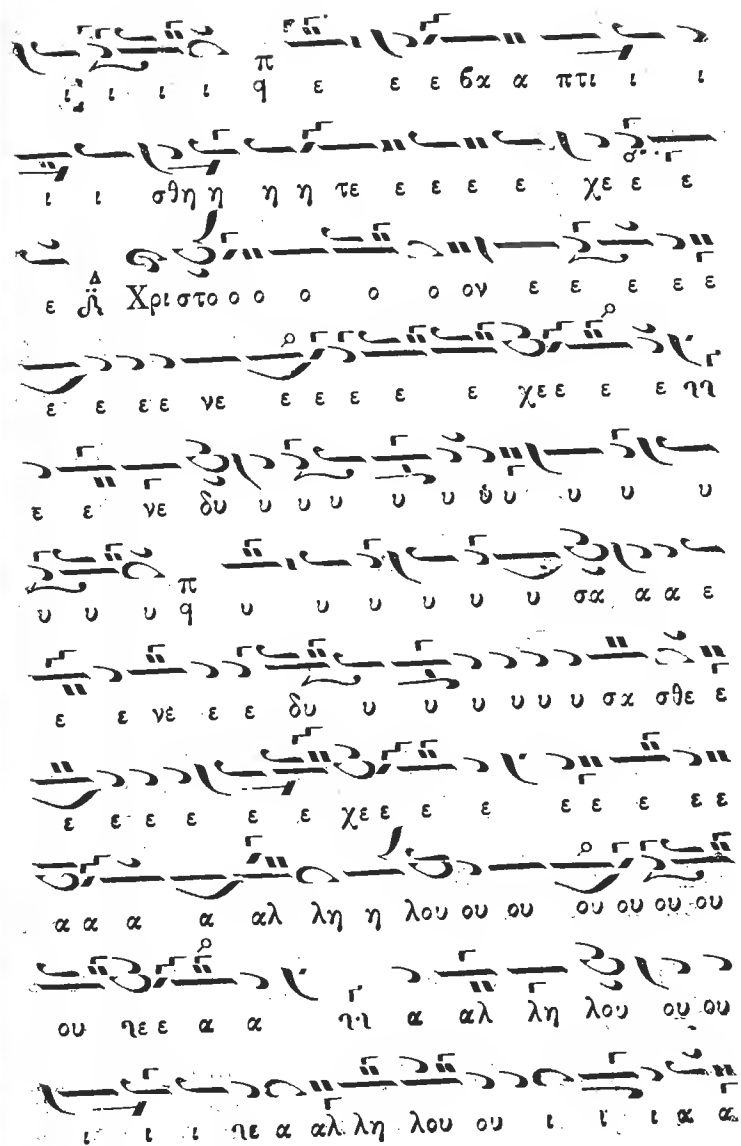 ι ι ι ι π q ε ε ε βα α πτι ι ι
ι ι σθη η η η τε ε ε ε ε χε ε ε
ε Δ Χρι στο ο ο ο ο ο ον ε ε ε ε ε
ε ε ε ε νε ε ε ε ε ε χε ε ε ε
ε ε νε δυ υ υ υ υ υ υ υ υ υ υ
υ υ υ π q υ υ υ υ υ υ σα α α ε
ε ε νε ε ε δυ υ υ υ υ υ υ σα σθε ε
ε ε ε ε ε ε χε ε ε ε ε ε ε ε ε
α α α α αλ λη η λου ου ου ου ου ου ου
ου ε ε α α α αλ λη λου ου ου
ι ι ι α αλ λη λου ου ι ι ι α α